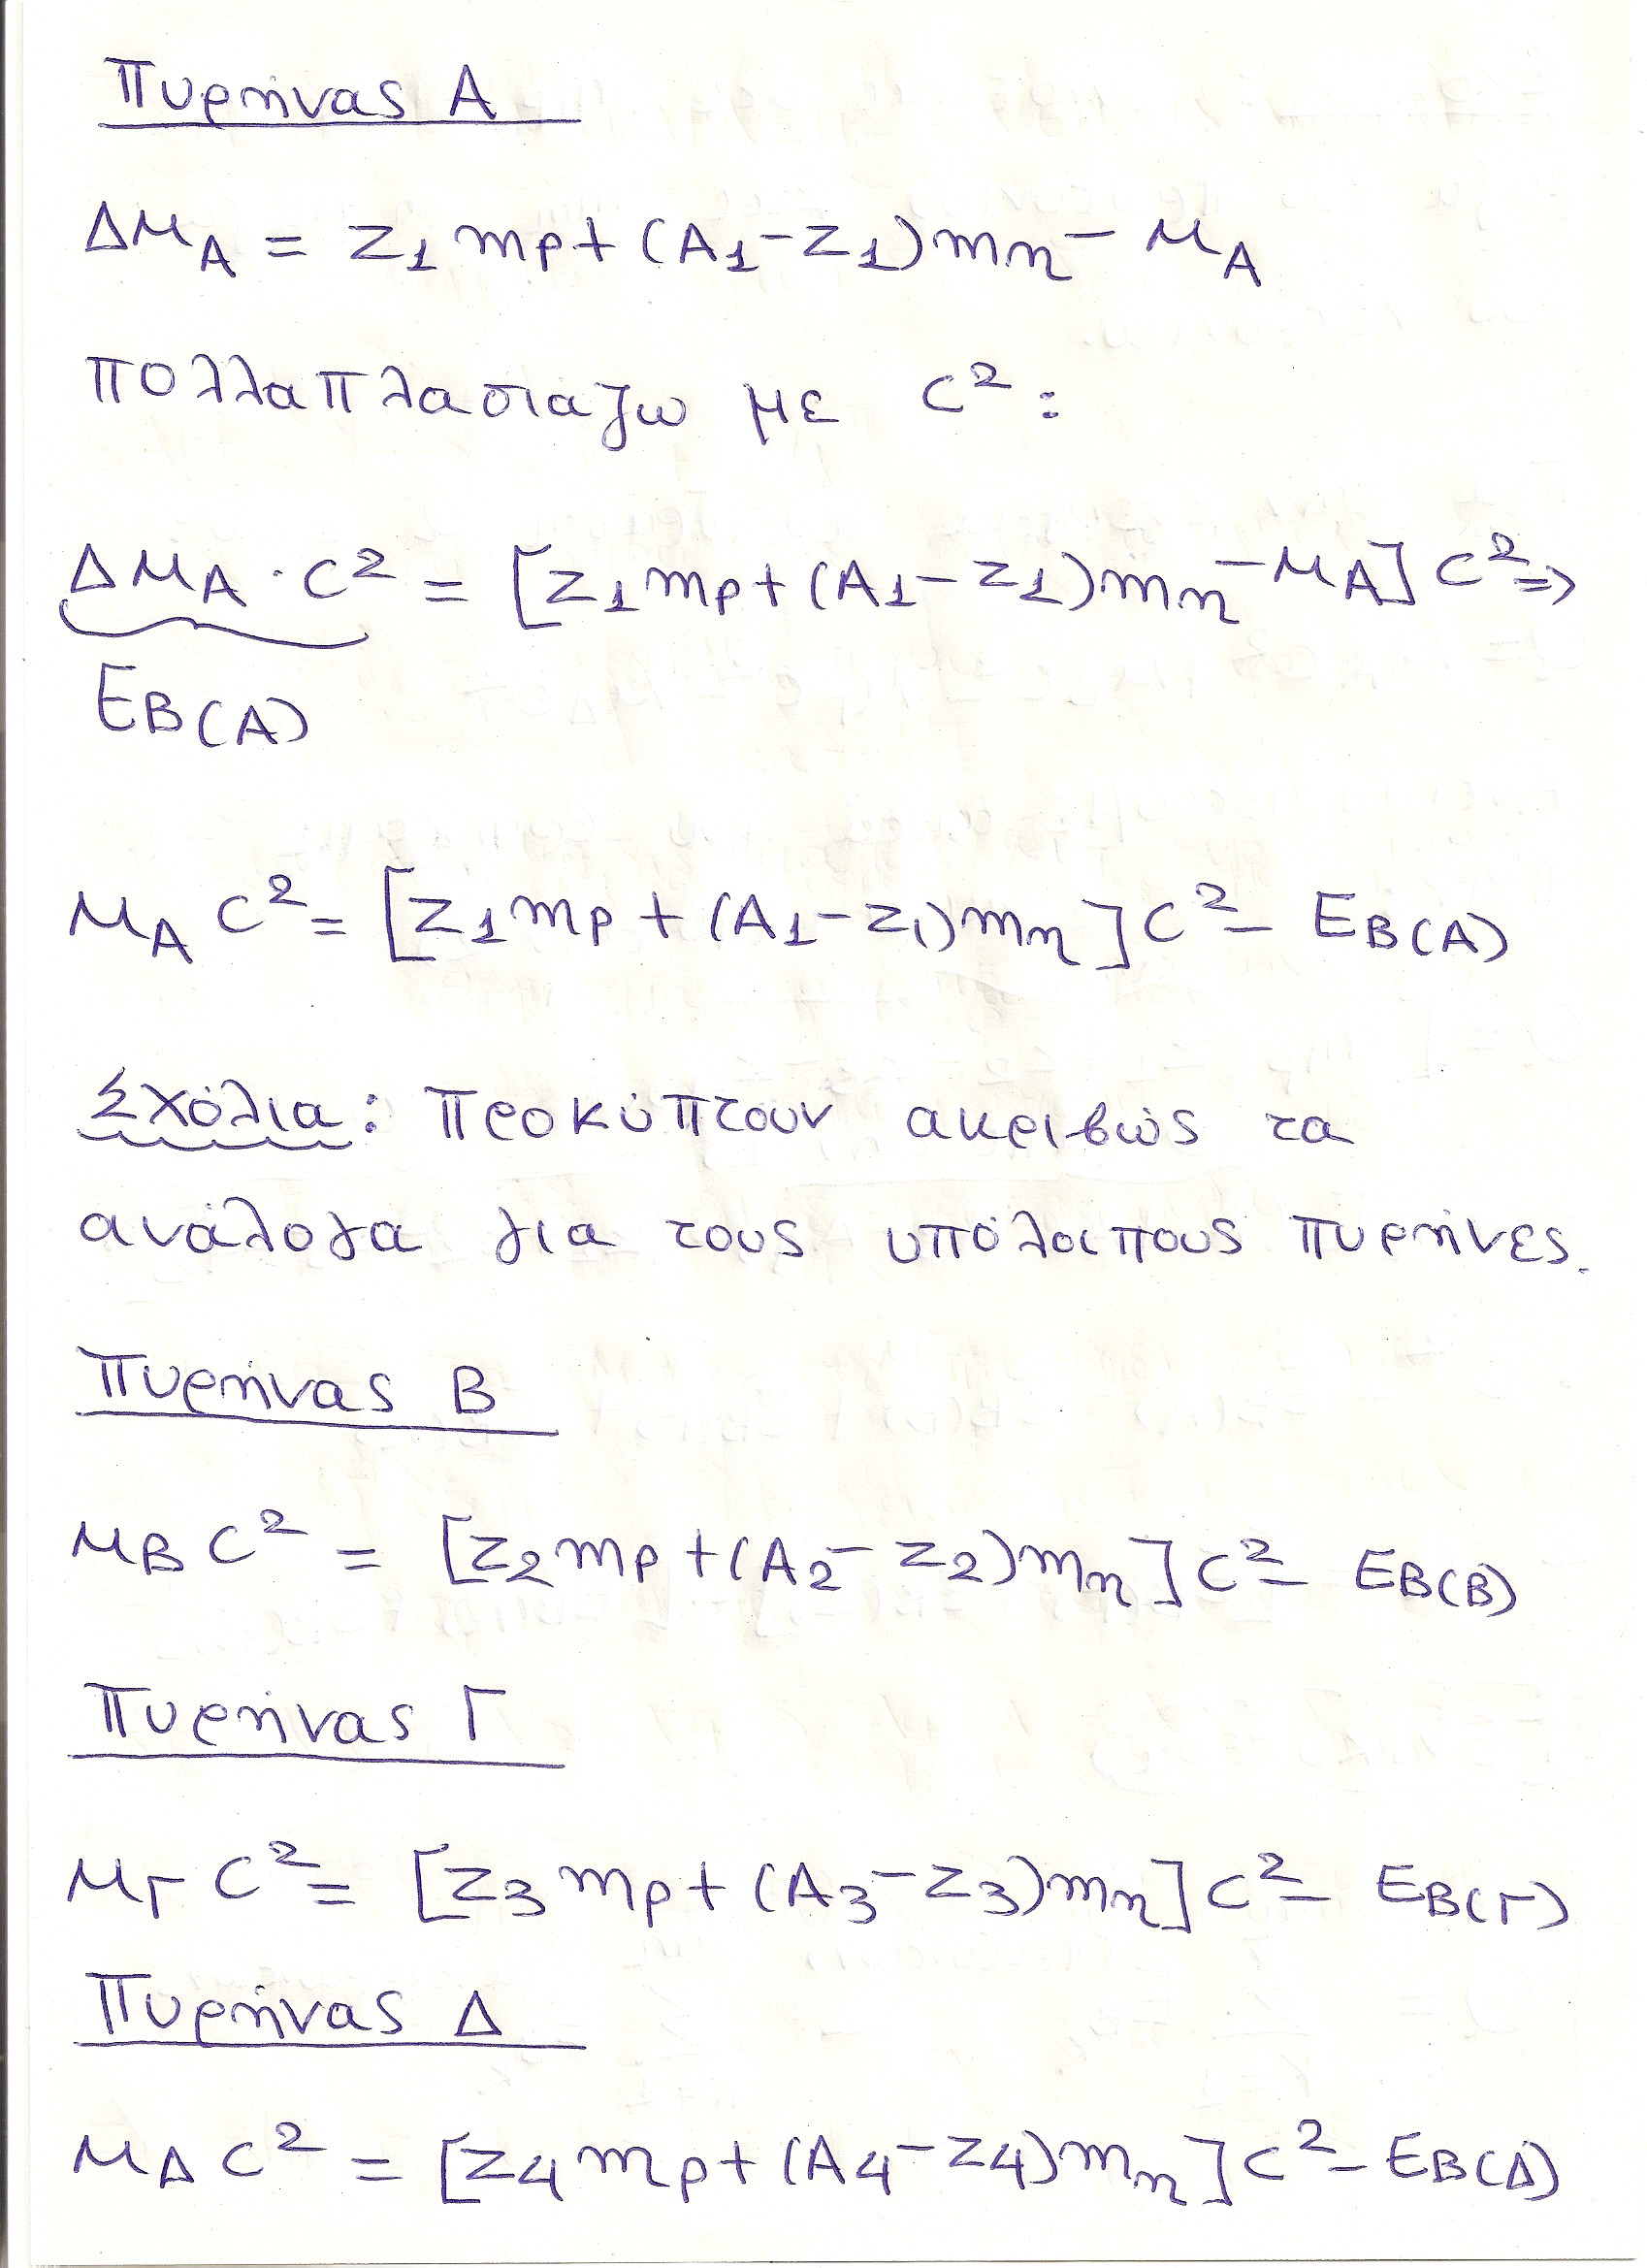 Πυρήνας Α
ΔΜ_Α = Z₁ mp + (A₁ - Z₁) mn - Μ_Α
πολλαπλασιάζω με C² :
ΔΜ_Α · C² = [Z₁ mp + (A₁ - Z₁) mn - Μ_Α] C² ⇒
E_B(A)
Μ_Α C² = [Z₁ mp + (A₁ - Z₁) mn] C² - E_B(A)
Σχόλια: Προκύπτουν ακριβώς τα
ανάλογα για τους υπόλοιπους πυρήνες.
Πυρήνας Β
Μ_Β C² = [Z₂ mp + (A₂ - Z₂) mn] C² - E_B(B)
Πυρήνας Γ
Μ_Γ C² = [Z₃ mp + (A₃ - Z₃) mn] C² - E_B(Γ)
Πυρήνας Δ
Μ_Δ C² = [Z₄ mp + (A₄ - Z₄) mn] C² - E_B(Δ)